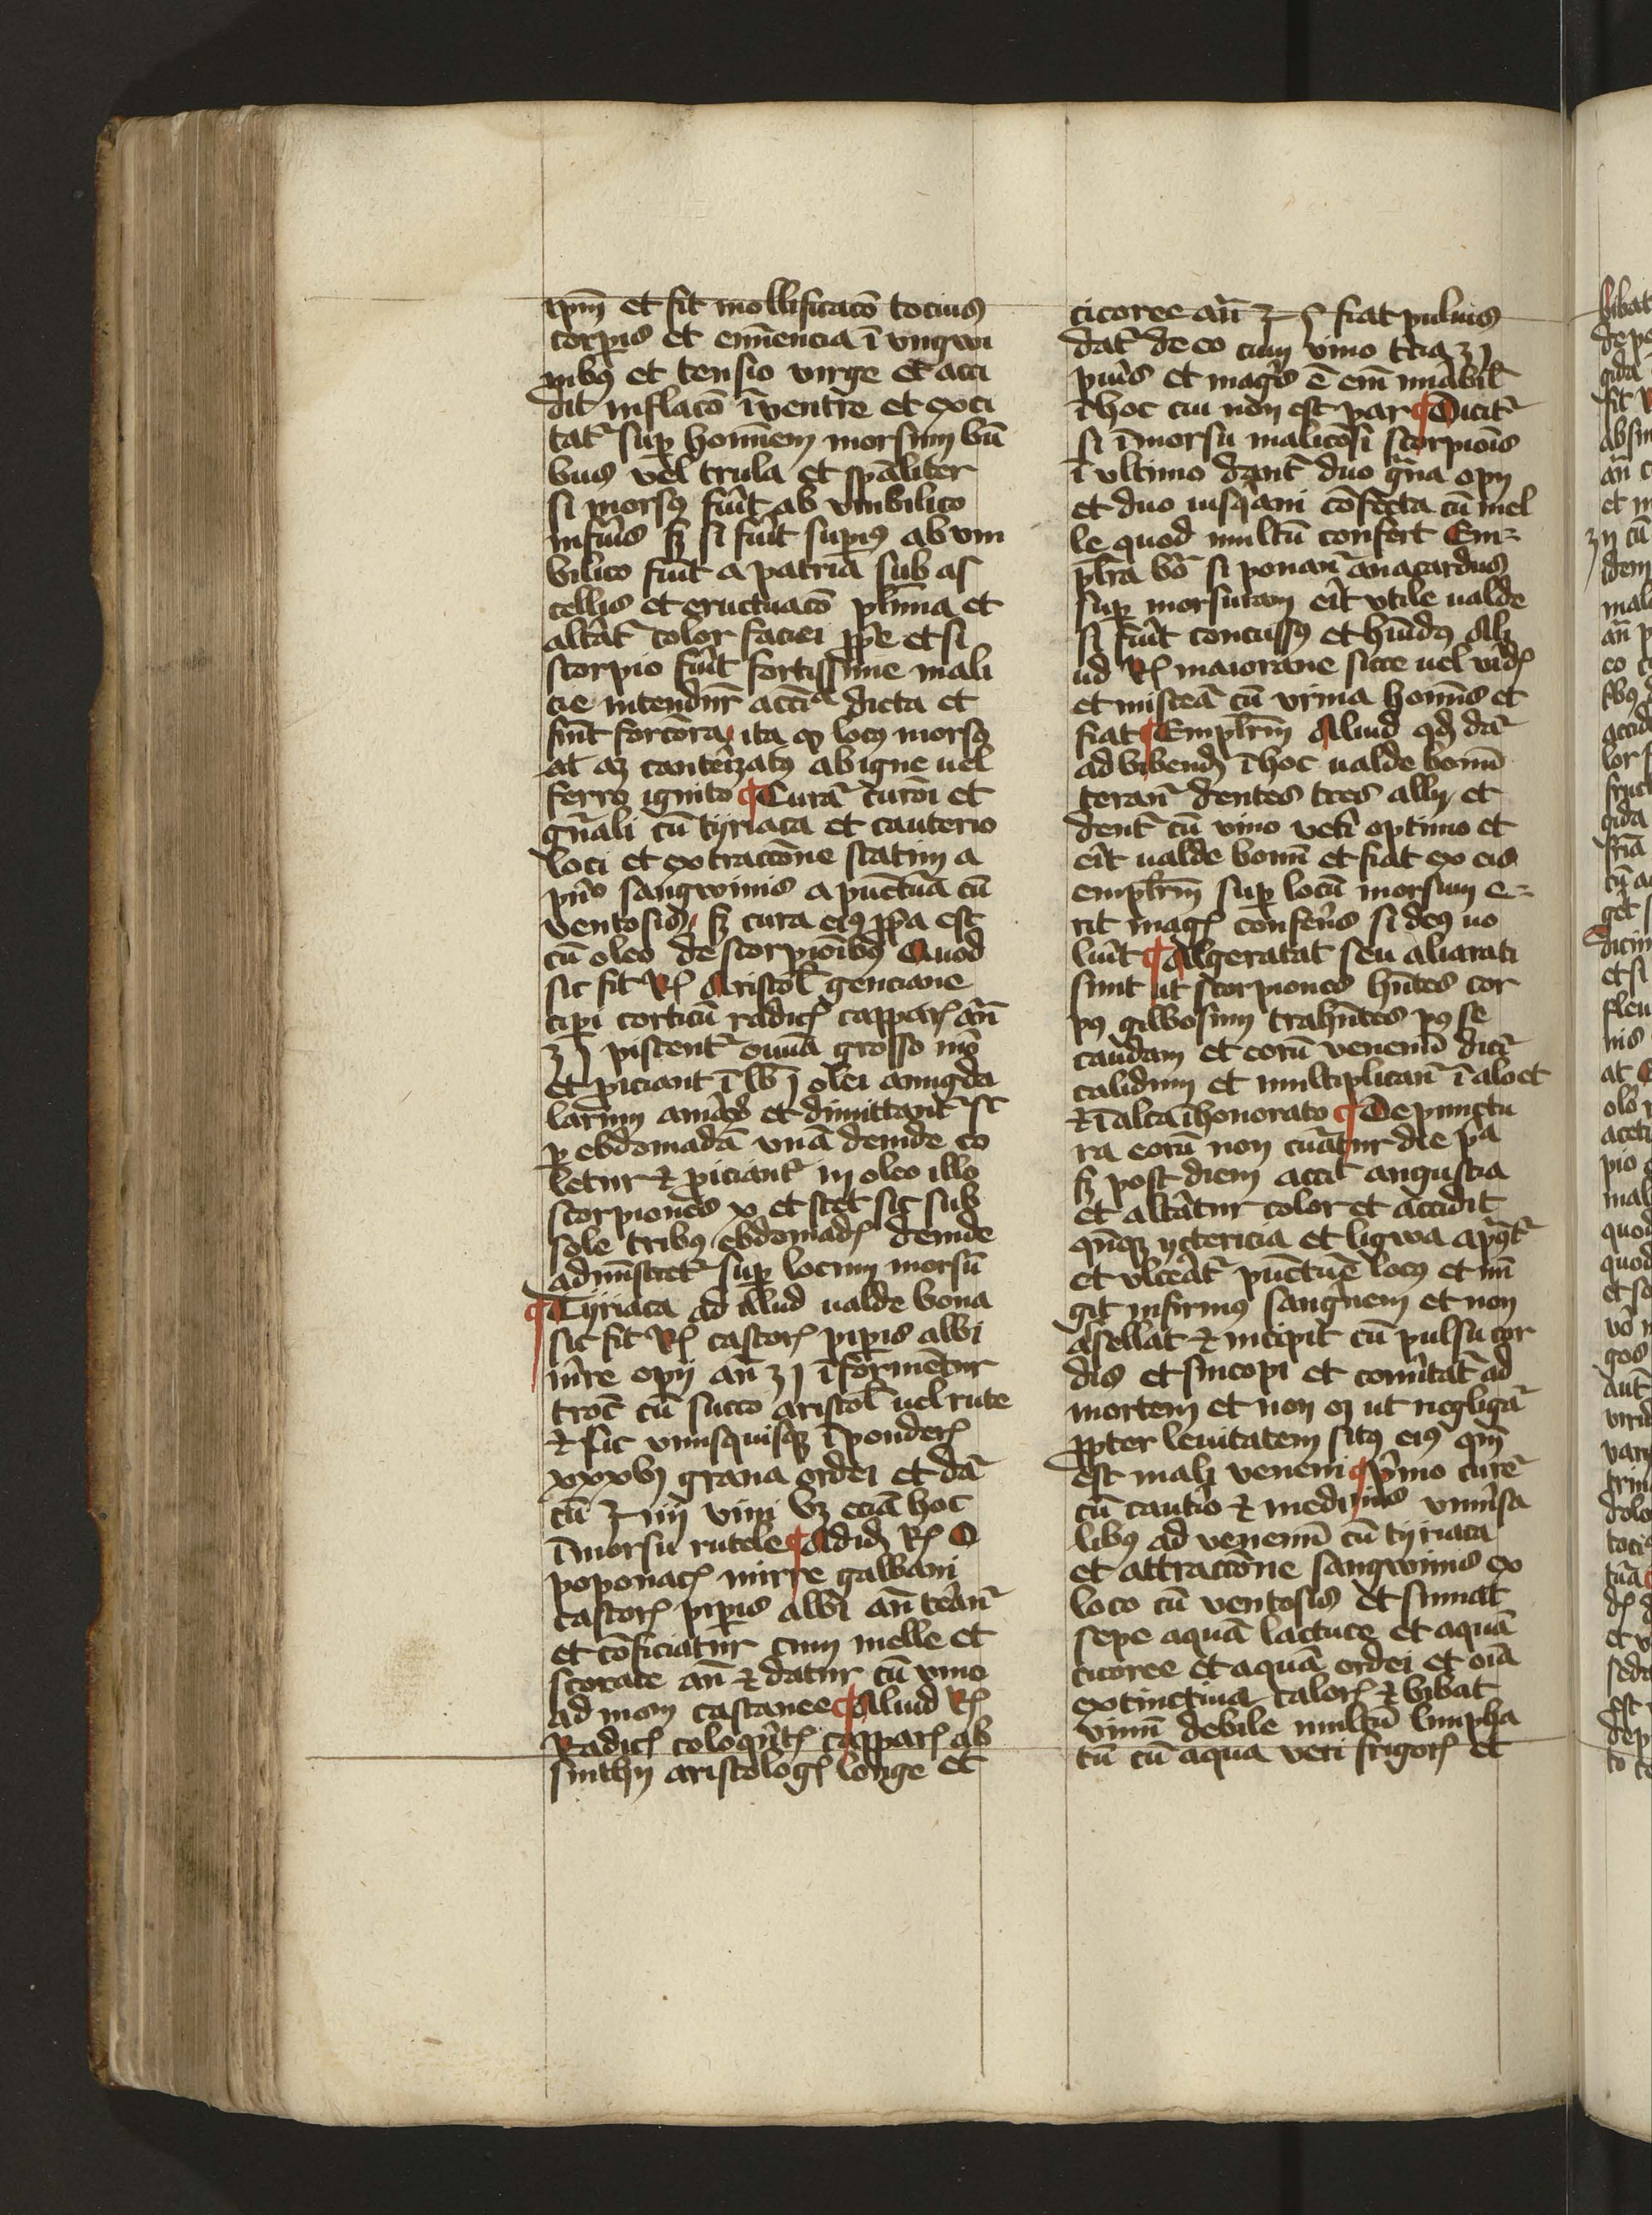 et fit mollificacō tocius
corpis et emīencia ī vngwi
nibꝯ et tensio virge et acci
dit inflacō ī ventre et exci
tat᷑ suꝑ homīem morsum
buus vel trula et spāliter
si morsꝯ fuit ab vmbilico
inferiꝯ sꝫ si fuit supiꝯ ab vm
bilico fuit a patria sub as
cellis et eructuacō plīma et
altāt᷑ color faciei ꝓpe et si
scorpio fuit fortissime mali
cie intendūr accīa dicta et
sint forcōra ita ꝙ locꝯ morsꝯ
at aꝫ cauteizatꝯ ab igne uel
ferro ignito ¶ Curā curōi et
gn̄ali cū tyriaca et cauterio
loci et extraccōne statim a
pn̊o sangwinis a pūctura cū
ventosis sꝫ cura eiꝯ ꝓpa est
cū oleo de scorpioibꝯ Quod
sic fit Rꝭ Aristol̄ genciane
cipi corticū radicꝭ capparꝭ an̄
ʒ j pistent᷑ omīa grosso mō
et ꝓiciant ī lb j olei amigda
larum amarꝫ et dimittant᷑ sic
ꝑ ebdomadā vnā deinde co
letur ⁊ ꝓiciant᷑ in oleo illo
scorpiones x et stet sic sub
sole tribꝯ ebdomadꝭ deinde
adminsteret᷑ suꝑ locum morsū
¶ Tyriaca ad illud ualde bona
sic fit Rꝭ castorꝭ pipis albi
mirre opij an̄ ʒ j ī formētur
trocꝭ cū succo aristol̄ uel rute
⁊ sic vnusquisqꝫ ī ponderꝭ
xxxvj grana ordei et dā᷑
cū ℥ iiij vini vꝫ eciā hoc
ī morsu rutele ¶ Adidꝫ Rꝭ O
poponacꝭ mirre galbani
castorꝭ pipis albi an̄ terān᷑
et cōficiatur cum melle et
storace an̄ ⁊ datur cū vino
ad mom castanee ¶ Aliud Rꝭ
Radicꝭ coloqͥntꝭ capparꝭ ab
sinthij aristologꝭ longe et
cicoree an̄ ℥ ſ fiat puluis
dat᷑ de eo cum vino tria ʒ j
pluꝯ et magis ē em̄ mirabil̄
ī hoc cui non est par ¶ Dicit᷑
si ī morsu malicōsi scorpiois
ī vltimo dant᷑ duo gͣna opij
et duo iusqͥami cōfecta cū mel
le quod multū confert Em-
plrā vo᷑ si ponant᷑ anacardus
suꝑ morsuram erit vtile ualde
si fuit concussꝯ et hūidꝯ Ali
ud Rꝭ maiorane sicce uel vidꝭ
et misceā᷑ cū vrina homīs et
fiat ¶ Emplrm̄ Aliud qd dā᷑
ad bibendꝫ ī hoc ualde bonū
teran᷑ dentes tres allij et
dent᷑ cū vino veti optimo et
eit ualde bonū et fiat ex eis
emplrm̄ suꝑ locū morsum e-
rit magꝭ conferēs si deꝯ uo
luit ¶ Algeratat seu aliarati
sunt ut scorpiones hn̄tes cor
pꝯ gilbosum trahn̄tes pꝯ se
caudam et eorū venenū dicit᷑
calidum et multiplican᷑ ī aloet
⁊ ī alcā ī honorato ¶ De punctu
ra eorū non curatur die pa
sꝫ post diem accit angustia
et altātur color et accidit
qn̄qꝫ yctericia et ligwa
et vlceāt᷑ pūcture locꝯ et mī
git infirmꝯ sangͥnem et non
assellat ⁊ incipit cū pulsu cor
dis et sincopi et comitat᷑ ad
mortem et non oꝫ ut negligā᷑
ꝓpter leuitatem sitꝯ eiꝯ qm̄
est malꝫ veneni ¶ pͥmo cure᷑
cū cautio ⁊ medinis vniuersa
libꝯ ad venenū cū tyriaca
et attraccōne sangwinis ex
loco cū ventosis et sumat
sepe aquā lactuce et aquā
cicoree et aquā ordei et oīa
extinctiua calorꝭ ⁊ bibat
vinū debile multū limpha
tū cū aqua veti frigorꝭ et